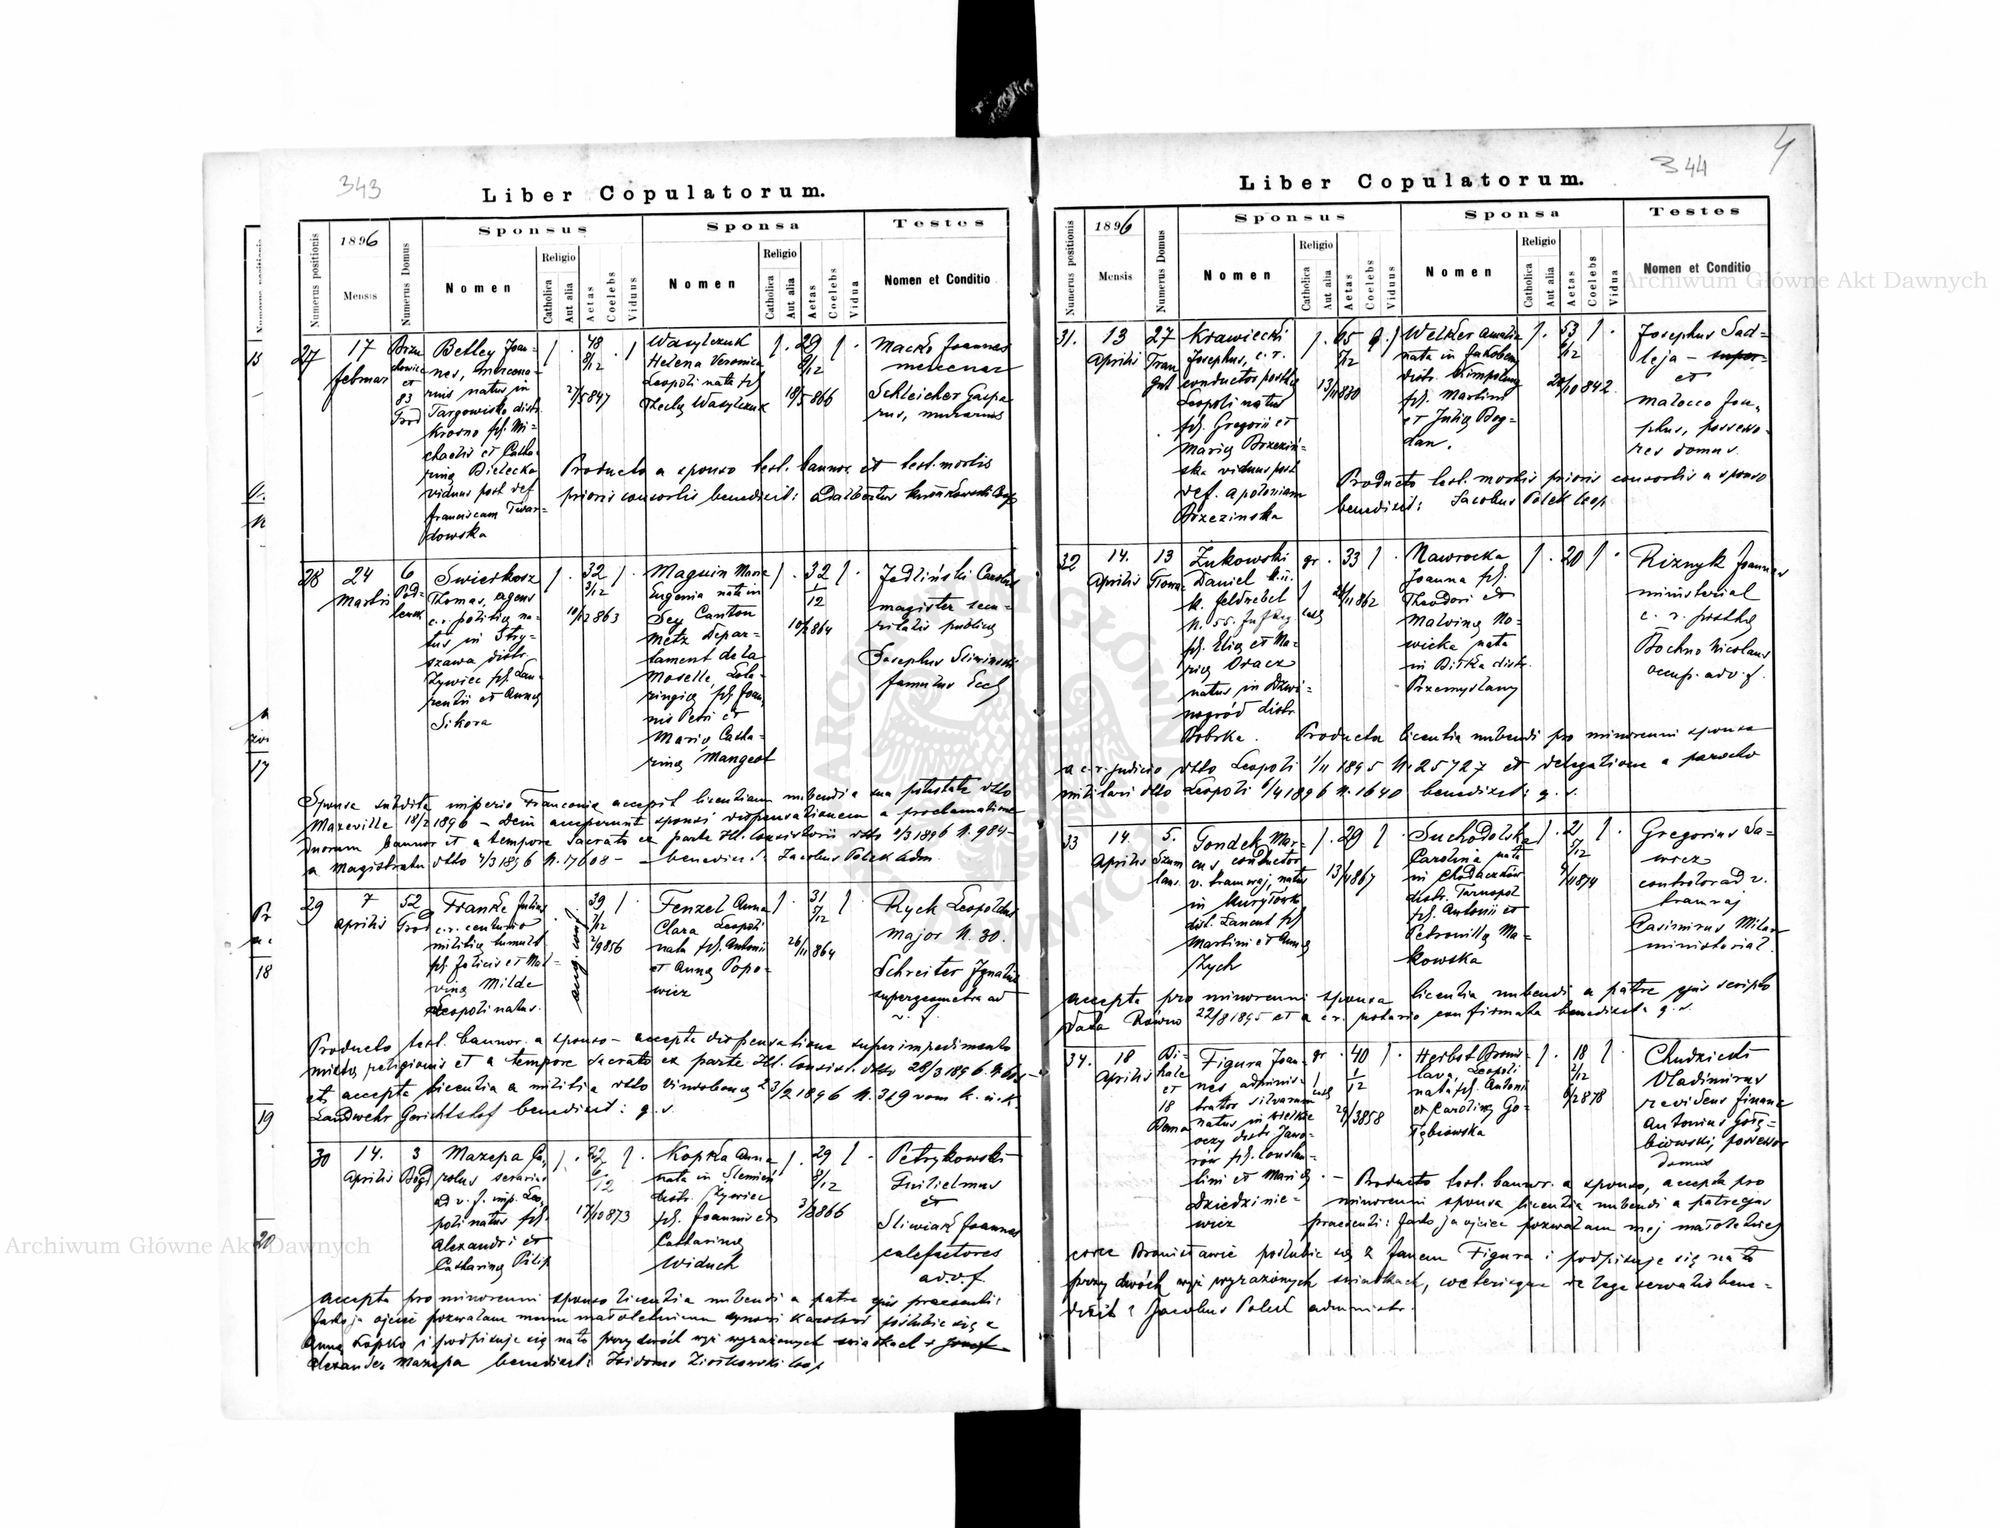 343
Liber Copulatorum.
Numerus positionis
1896
Mensis
Numerus Domus
Sponsus
Nomen
Religio
Catholica
Aut alia
Aetas
Coelebs
Viduus
Sponsa
Nomen
Religio
Catholica
Aut alia
Aetas
Coelebs
Vidua
Testes
Nomen et Conditio
27
17
februar
et
83
Grod
Belley Joan-
nes, mercena-
rius natus in
Targowisko distr.
Krosno fil. Mi-
chaelis et Catha-
rina Bielecka
viduus post def.
franciscam Twar-
dowska
48
8/12
27/5 847
Wasylczuk
Helena Veronica
Leopoli nata fil.
Thecla Wasylczuk
29
9/12
18/5 866
Macko Joannes
mercenar
Schleicher Gaspa
rus, murarius
Producto a sponso test. bannor. et test. mortis
prioris consortis benedixit:
28
24
Martii
6
Swierkosz
Thomas, agens
c. r. politiae na-
tus in Stry-
szawa distr.
Zywiec fil. Lau-
rentii et Anna
Sikora
32
3/12
10/12 863
Maguin Maria
Eugenia nata in
Sey Canton
Metz Depar-
tament de la
Moselle, Lota-
ringia, fil. Joan-
nis Petri et
Maria Catha-
rina Mangeot
32
1
12
10/2 864
Jedliński Carolus
magister secu-
ritatis publica
Josephus Sliwinski
famulus Eccl
Sponsa subdita imperio Franconia accepit licentiam nubendi a sua potestate dtto
Mazeville 18/2 1896 – Dein acceperunt sponsi dispensationem a proclamatione
duorum bannor. et a tempore sacrato ex parte Ill. Consistorii dtto 2/3 1896 N. 984 –
a Magistratu dtto 4/3 1896 N. 17608 – benedixit: Jacobus Polek Adm.
29
7
Aprilis
52
Grod
Franke Julius
c. r. centurio
militia
fil. Felicis et Mal-
vina Milde
Leopoli natus.
39
7/12
2/9 856
Fenzel Anna
Clara Leopoli
nata fil. Antonii
et Anna Popo-
wicz
31
5/12
26/11 864
Ryck Leopoldus
major N. 30.
Schreiter Ignatius
supergeometra ad
v. f.
Producto test. bannor. a sponso – accepta dispensatione super impedimento
mixta religionis et a tempore sacrato ex parte Ill. Consist. dtto 28/3 1896 N.
et accepta licentia a militia dtto Vindobona 23/2 1896 N. 319 vom k. u. k.
Landwehr Gerichtshof benedixit: q. s.
30
14.
Aprilis
3
Bogd
Mazepa Ca-
rolus serarius
ad v. f. imp. Leo-
poli natus fil.
Alexandri et
Catharina Pilip
22
6
12
17/10 873
Kopka Anna
nata in Slemien
distr. Zywiec
fil. Joannis et
Catharina
Widuch
29
8/12
3/8 866
Petrykowski
Guilielmus
et
Sliwiak Joannes
calefactores
ad. v. f.
accepta pro minorenni sponso licentia nubendi a patre ejus praesenti:
Jako ja ojciec pozwalam memu małoletniemu synowi Karolowi poślubić się z
Anną Kopko i podpisuje się na to przy dwóch wyż wyrażonych swiadkach
Alexander Mazepa benedixit: Isidorus Ziołkowski coop
344
4
Liber Copulatorum.
Numerus positionis
1896
Mensis
Numerus Domus
Sponsus
Nomen
Religio
Catholica
Aut alia
Aetas
Coelebs
Viduus
Sponsa
Nomen
Religio
Catholica
Aut alia
Aetas
Coelebs
Vidua
Testes
Nomen et Conditio
31.
13
Aprilis
27
Krawiecki
Josephus, c. r.
conductor posta
Leopoli natus
fil. Gregorii et
Maria Brzeziń-
ska viduus post
def. Apoloniam
Brzezinska
65
5/12
13/11 830
Welker Amalia
nata in Jakobeny
distr. Kimpolung
fil. Martini
et Julia Bog-
dan.
53
6/12
20/10 842
Josephus Sad-
leja –
et
Matocco Jose-
phus, possesso-
res domus.
Producto test. mortis prioris consortis a sponso
benedixit: Jacobus Polek Coop
32
14.
Aprilis
13
Zukowski
Daniel k. u.
k. feldwebel
N. 55.
fil. Elia et Ma-
ria Oracz
natus in Dzwi-
nogród distr
Bobrka.
gr.
cath
33
28/11 862
Nawrocka
Joanna fil.
Theodori et
Malvina No-
wicka nata
in Bitka distr.
Przemyslany
20
Riznyk Joannes
ministerial
c. r. posta
Bochno Nicolaus
occup. ad v. f.
Producta licentia nubendi pro minorenni sponsa
a c. r. Judicio dtto Leopoli 1/11 1895 N. 25727 et delegatione a parocho
militari dtto Leopoli 6/4 1896 N. 1640 benedixit: q. s.
33
14.
Aprilis
5.
Gondek Mar-
cus, conductor
v. tramvaj, natus
in Kuryłówk
dist. Lancut fil.
Martini et Anna
Zych
29
13/4 867
Suchodolska
Carolina nata
in Chodaczków
distr. Tarnopol
fil. Antonii et
Petronilla Ma-
kowska
21
5/12
4/11 874
Gregorius Sa-
wicz
controlor ad v.
tramvaj
Casimirus Milan
ministerial.
accepta pro minorenni sponsa licentia nubendi a patre ejus scripto
data Rowno 22/8 1895 et a c. r. notario confirmata benedixit: q. s.
34.
18
Aprilis
et
18
Figura Joan-
nes adminis-
trator silvarum
natus in Wielkie
oczy distr. Jawo-
rów fil. Constan-
tini et Maria
Dziedzinie-
wicz
gr
cath
40
1
12
29/3 858
Herbst Broni-
slava Leopoli
nata fil. Antonii
et Carolina Go-
łębiowska
18
2/12
6/2 878
Chudzicki
Vladimirus
revidens finanz
Antonius Gołę-
biowski, possessor
domus
– Producto test. bannor. a sponso, accepta pro
minorenni sponsa licentia nubendi a patre ejus
praesenti: Jako ja ojciec pozwalam mej małoletniej
corce Bronisławie poślubic się z Janem Figura i podpisuje się na to
przy dwóch wyż wyrażonych swiadkach, ceterisque de lege servatis bene-
dixit: Jacobus Polek administr.
15
17
18
19
20
Archiwum Główne Akt Dawnych
Archiwum Główne Akt Dawnych
ARCHIWUM GŁÓWNE AKT DAWNYCH